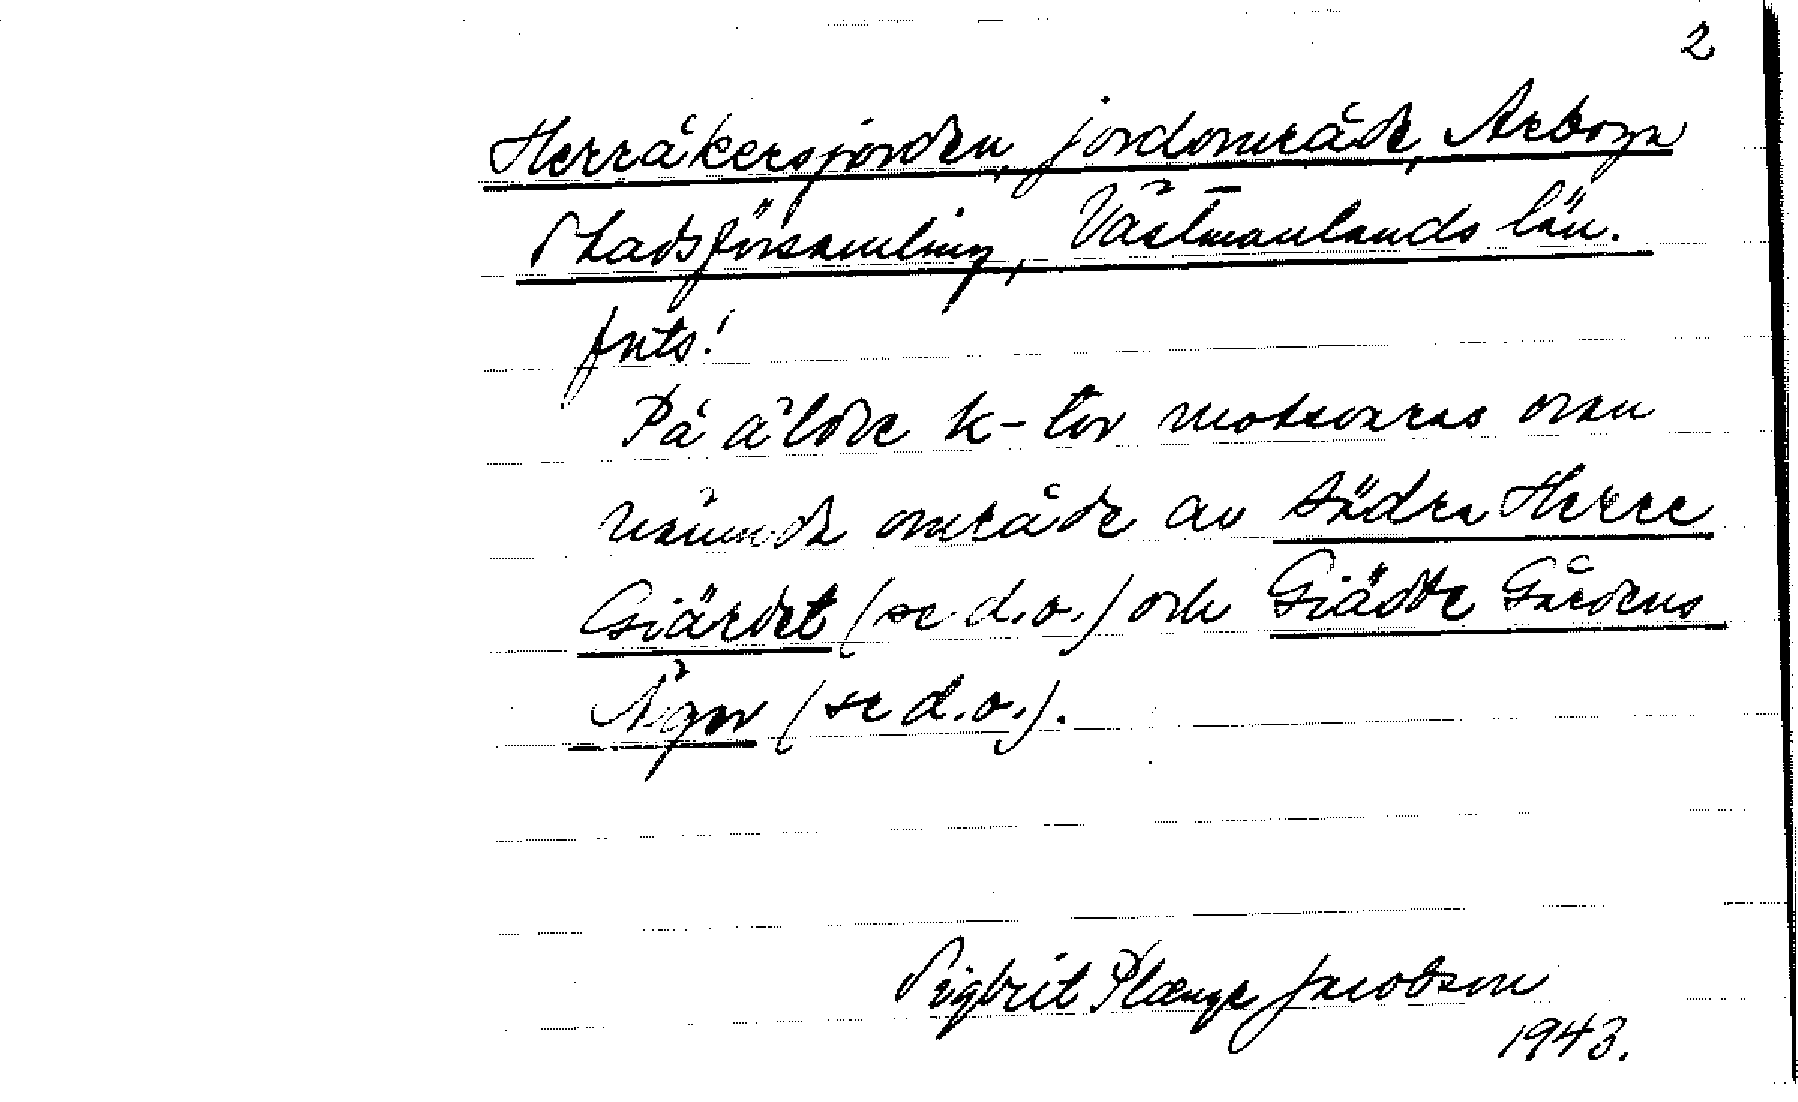 2
Herråkersjorden, jordområde, Arboga
Stadsförsamling, Västmanlands län.
forts!
På äldre k-tor motsvaras ovan
nämnda område av Södra Herre
Giärdet (se d.o.) och Giädde Gårdens
Ägor (se d.o.).
Sigbrit Plænge Jacobson
1943.